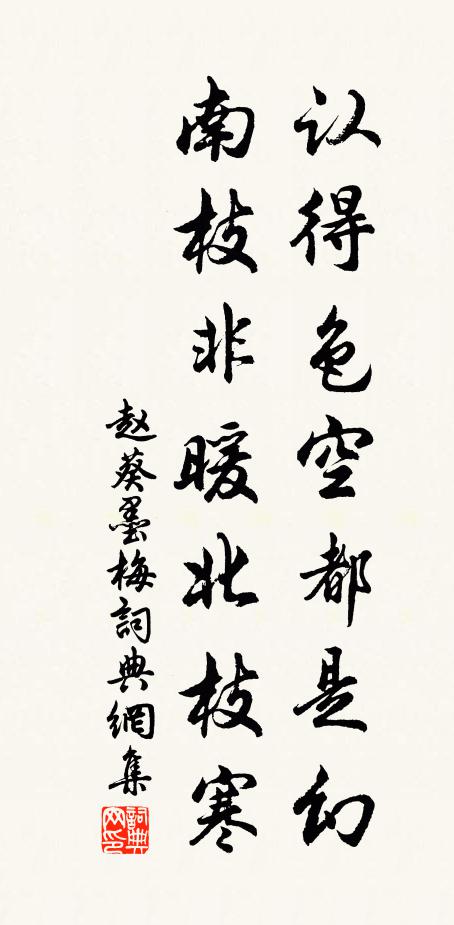 认得色空都是幻
南枝非暖北枝寒
赵葵墨梅詞典網集
詞典网印